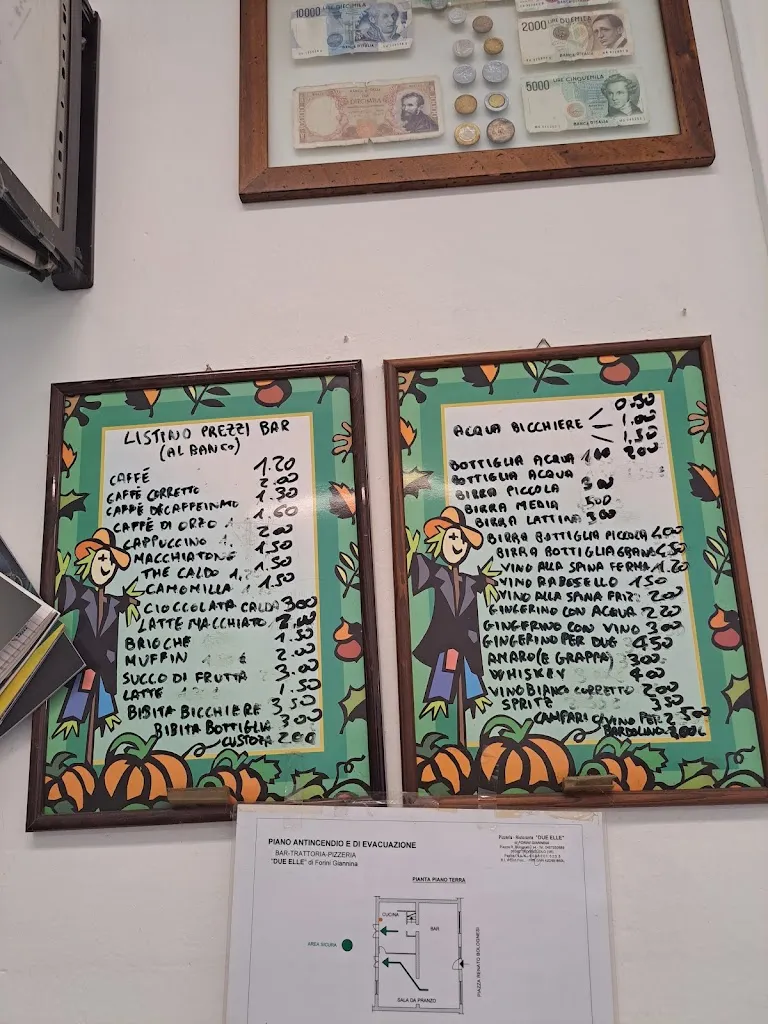 10000 LIRE DIECIMILA
BANCA D'ITALIA
2000 LIRE DUEMILA
BANCA D'ITALIA
5000 LIRE CINQUEMILA
BANCA D'ITALIA
LISTINO PREZZI BAR
(AL BANCO)
CAFFÉ 1.20
CAFFÉ CORRETTO 2.00
CAFFÉ DECAFFEINATO 1.30
CAFFÉ DI ORZO 1.60
CAPPUCCINO 2.00
MACCHIATONE 1.50
THE CALDO 1.50
CAMOMILLA 1.50
CIOCCOLATA CALDA 300
LATTE MACCHIATO 2.00
BRIOCHE 1.50
MUFFIN 2.00
SUCCO DI FRUTTA 3.00
LATTE 1.50
BIBITA BICCHIERE 350
BIBITA BOTTIGLIA 300
CUSTOZA 200
0.50
ACQUA BICCHIERE 1.00
1,50
BOTTIGLIA ACQUA 100 200
BOTTIGLIA ACQUA
BIRRA PICCOLA 300
BIRRA MEDIA 500
BIRRA LATTINA 300
BIRRA BOTTIGLIA PICCOLA 400
BIRRA BOTTIGLIA GRANDE 450
VINO ALLA SPINA FERMO 1.20
VINO RABOSELLO 150
VINO ALLA SPINA FRIZ 200
GINGERINO CON ACQUA 220
GINGERINO CON VINO 300
GINGERINO PER DUE 450
AMARO (E GRAPPA) 300
WHISKEY 400
VINO BIANCO CORRETTO 200
SPRITZ 350
CAMPARI C/VINO PER 2 500
BARDOLINO 300
PIANO ANTINCENDIO E DI EVACUAZIONE
BAR-TRATTORIA-PIZZERIA
"DUE ELLE" di Forini Giannina
Pizzeria - Ristorante "DUE ELLE"
di FORINI GIANNINA
PIANTA PIANO TERRA
CUCINA
BAR
AREA SICURA
PIAZZA RENATO BOLOGNESI
SALA DA PRANZO